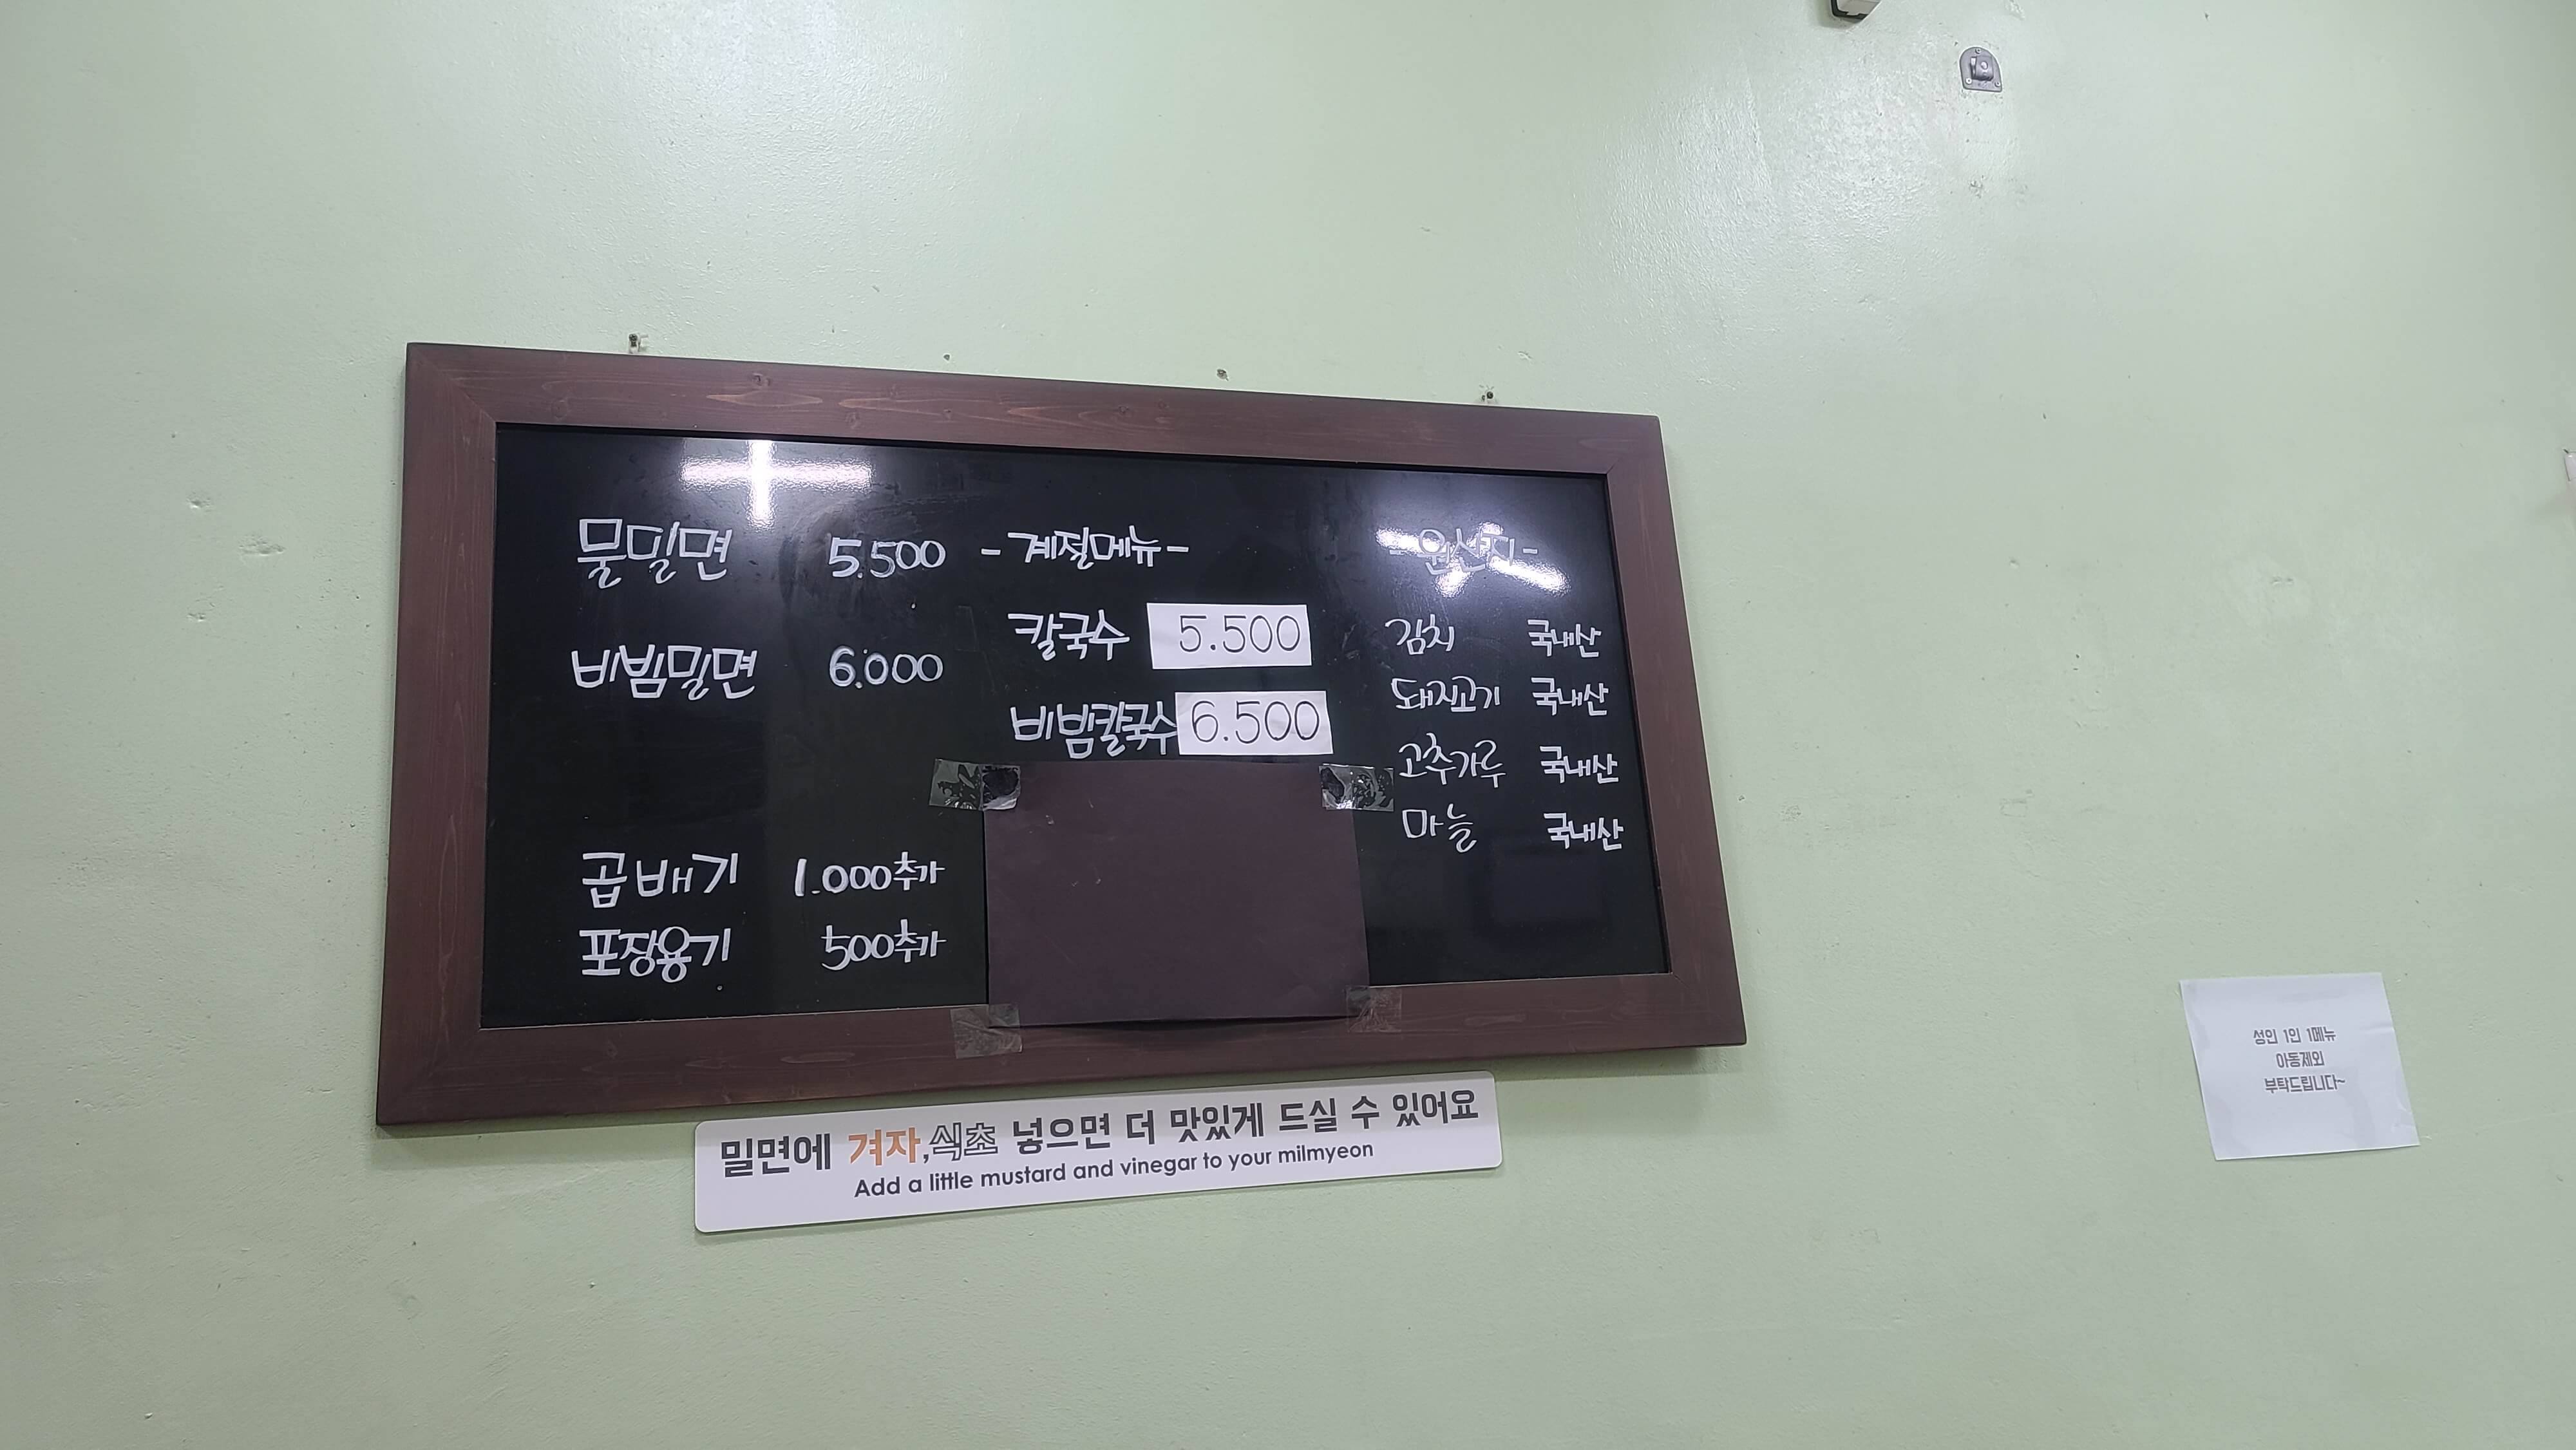 물밀면 5.500
비빔밀면 6.000
곱배기 1.000추가
포장용기 500추가
-계절메뉴-
칼국수 5.500
비빔칼국수 6.500
-원산지-
김치 국내산
돼지고기 국내산
고추가루 국내산
마늘 국내산
밀면에 겨자,식초 넣으면 더 맛있게 드실 수 있어요
Add a little mustard and vinegar to your milmyeon
성인 1인 1메뉴
아동제외
부탁드립니다~